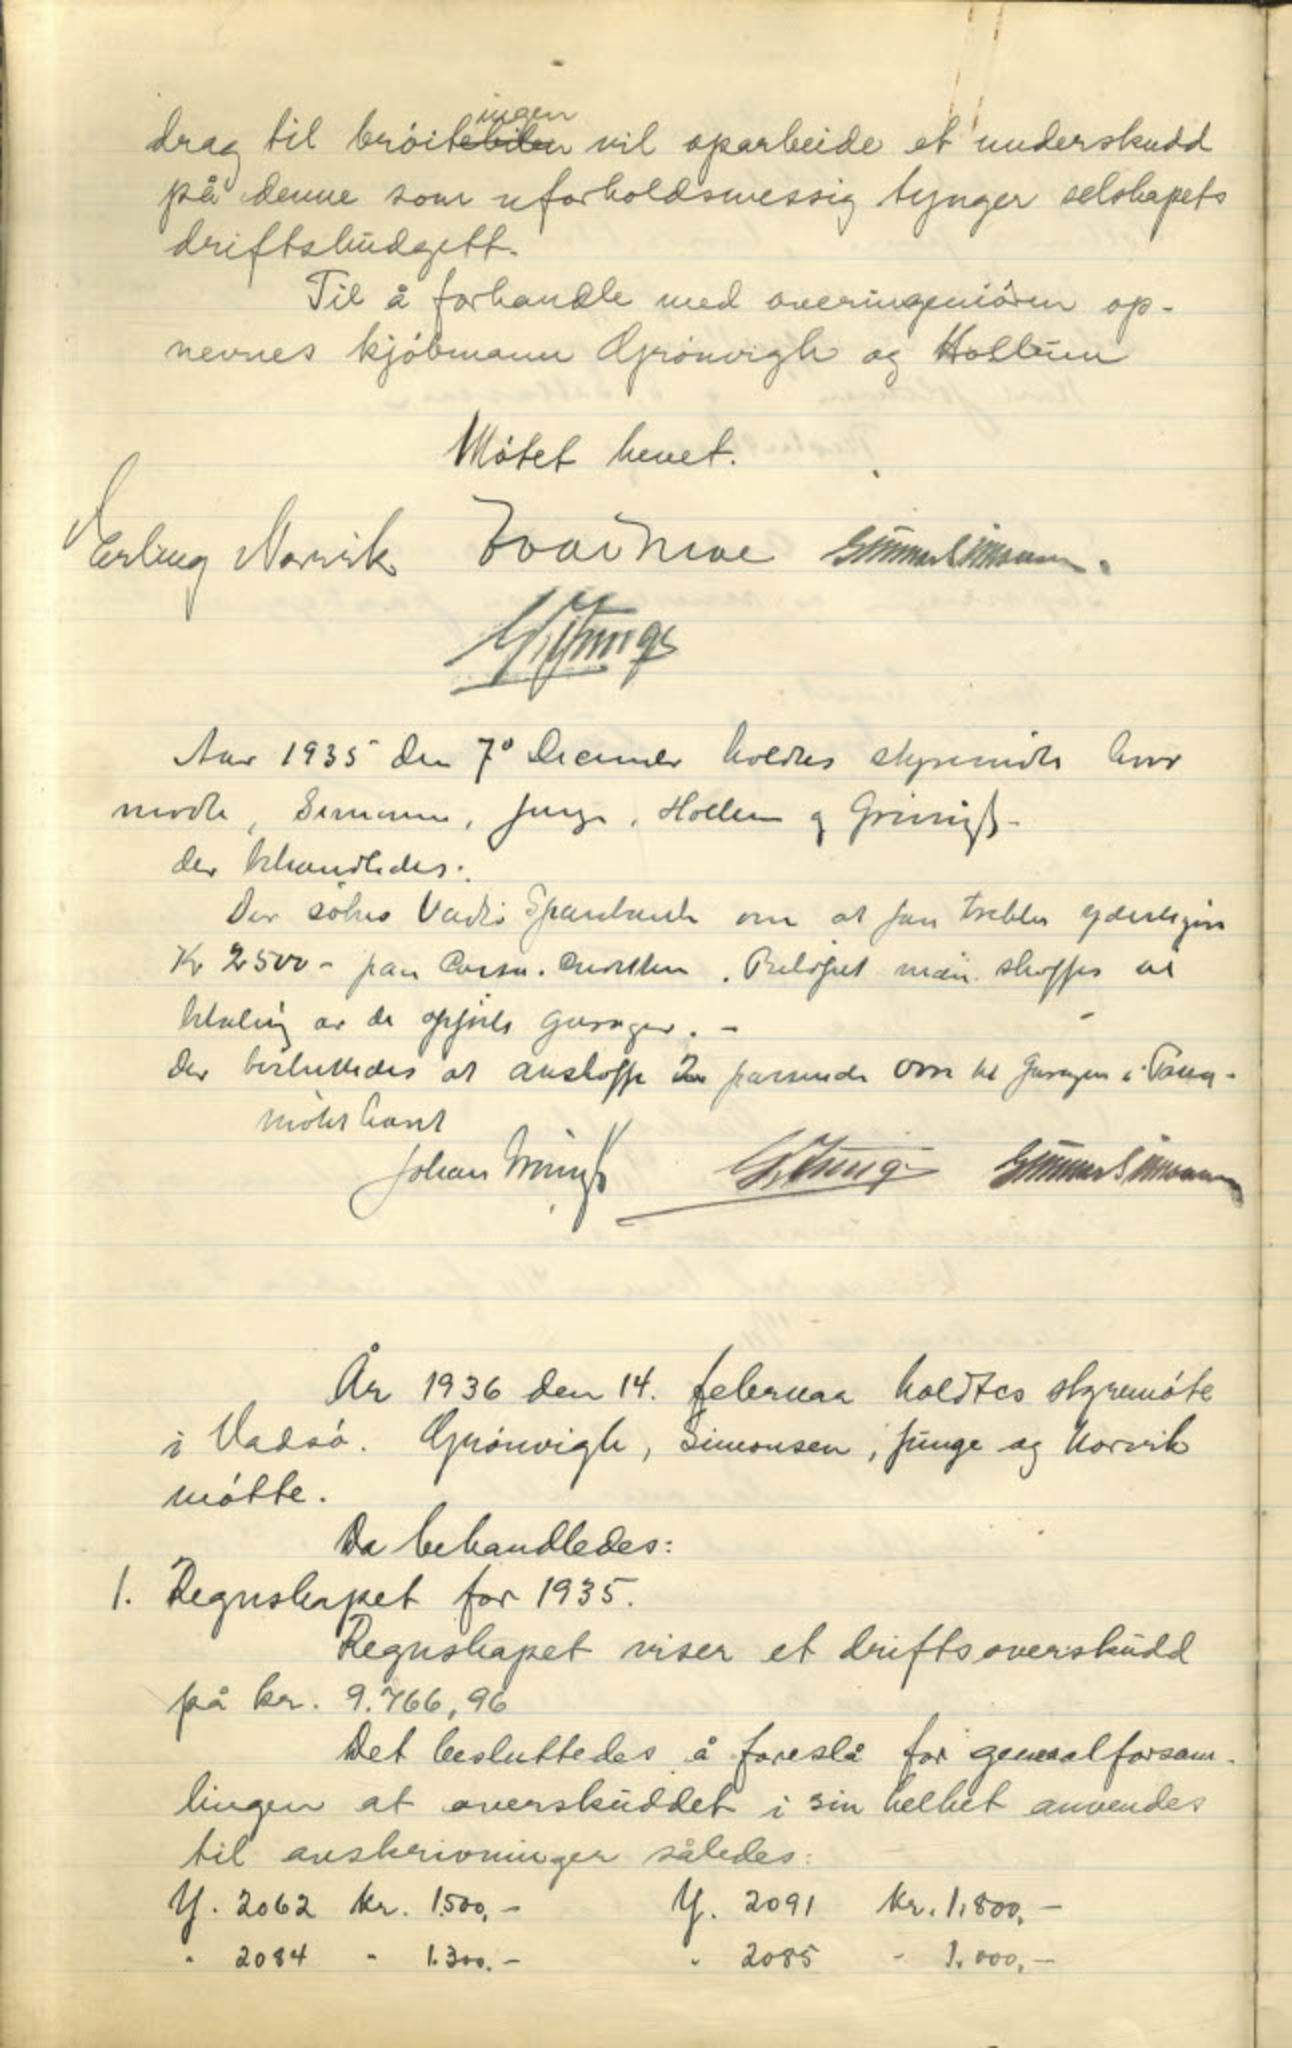 drag til bröitebilen ingen vil oparbeide et underskudd
på denne som uforholdsmessig tynger selskapets
driftsbudgett.
Til å forhandle med overingeniören op-
nevnes kjöbmann Grönvigh og Hollum
Mötet hevet.
Erling Norvik Ivar Moe Gunnar Simonsen.
G. Junge
Aar 1935 den 7º December holdtes styremöte hvor
mödte, Simonsen, Junge, Hollum og Grönvigh-
der behandledes:
Der sökes Vadsö Sparebank om at faa trekke yderligere
Kr 2500- paa Beløpet maa skaffes
betaling av de garager. -
Der besluttedes at anskaffe 2 passende ovne til garagen i Tana-
Mötet hævet
Johan Grönvigh G. Junge Gunnar Simonsen
År 1936 den 14. februar holdtes styremöte
i Vadsö. Grönvigh, Simonsen, Junge og Norvik
mötte.
Da behandledes:
1. Regnskapet for 1935.
Regnskapet viser et driftsoverskudd
på kr. 9.766,96
Det besluttedes å foreslå for generalforsam-
lingen at overskuddet i sin helhet anvendes
til avskrivninger således:
Y. 2062 kr. 1500,- Y. 2091 kr. 1.800,-
" 2084 " 1.300.- " 2085 " 1.000,-